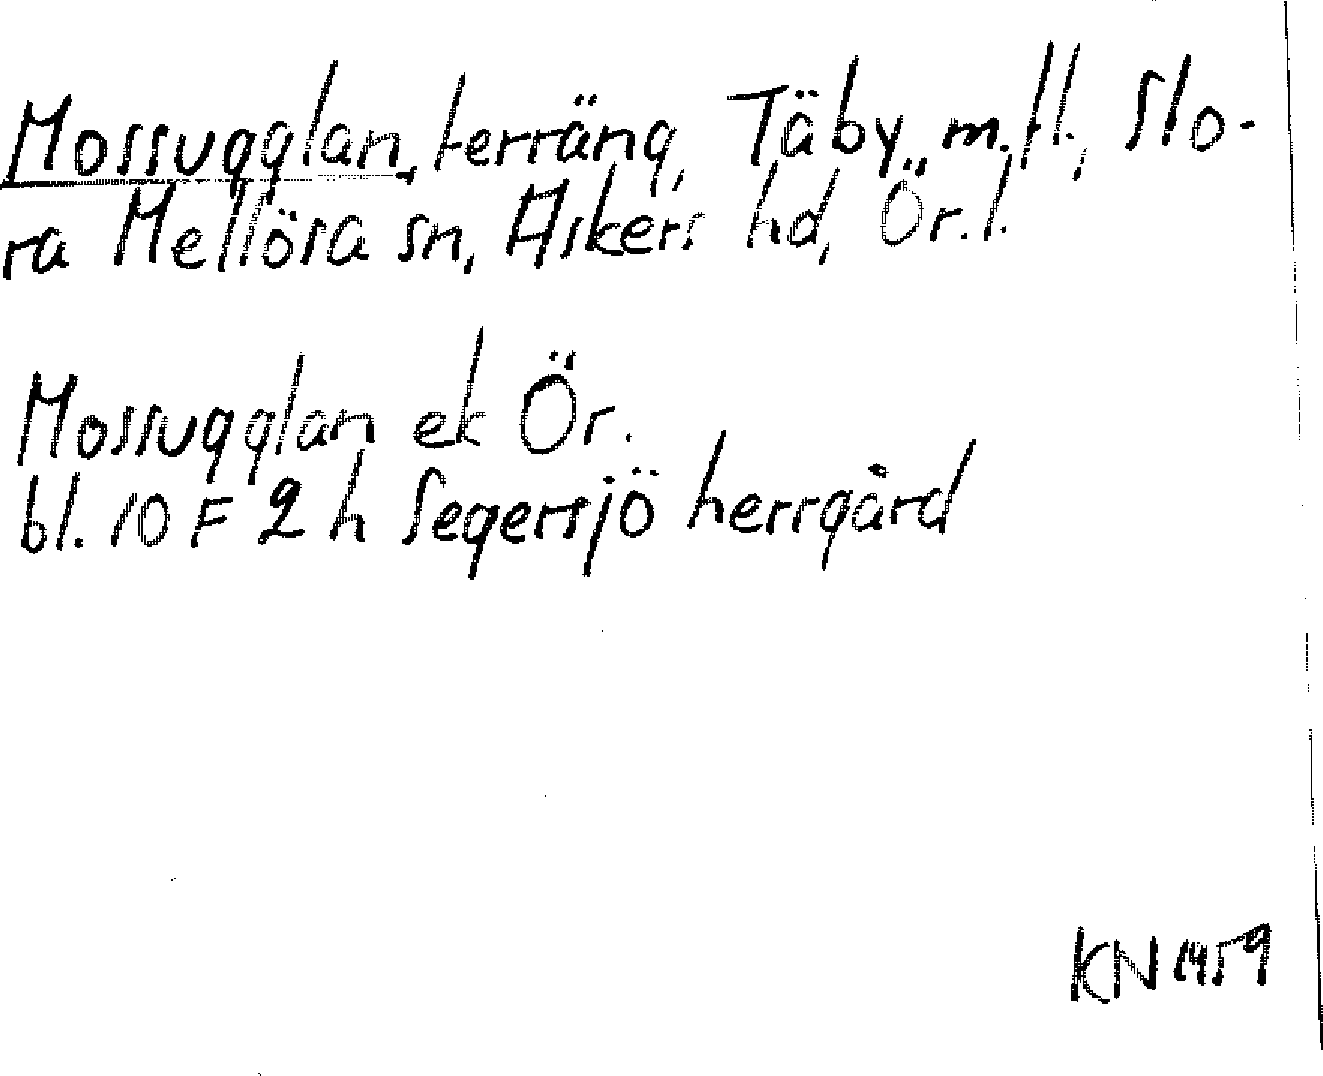 Mossugglan, terräng, Täby m.fl., Sto-
ra Mellösa sn, Askers hd, Ör.l.
Mossugglan ek Ör.
bl. 10 F 2 h Segersjö herrgård
KN 1959